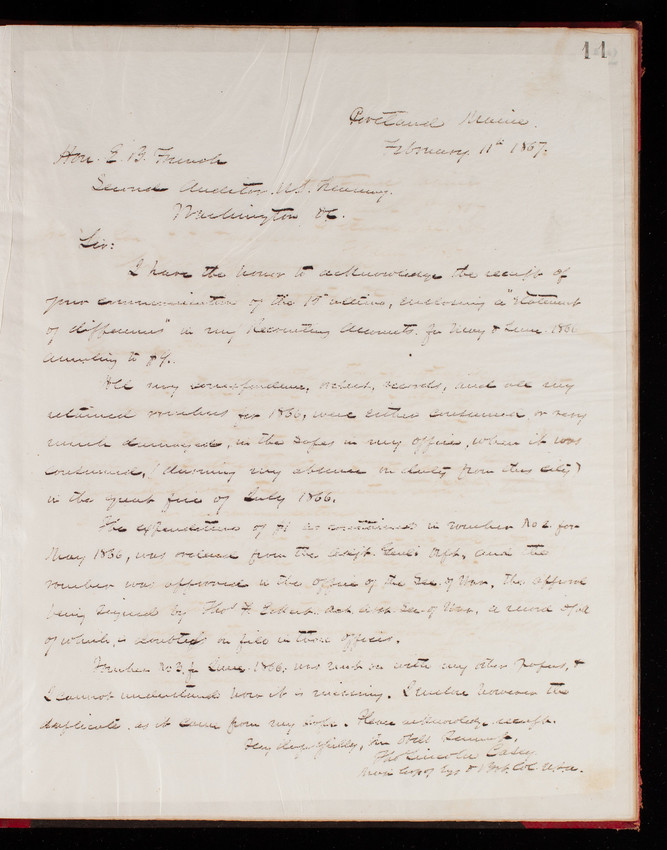 14
Portland Maine.
February 11th 1867.
Hon. E. B. French
Second Auditor U.S. Treasury.
Washington DC.
Sir:
I have the honor to acknowledge the receipt of
your communication of the 1st ultimo, enclosing a "Statement
of differences" in my Recruiting Accounts for May & June 1866
amounting to
All my correspondence, orders, records, and all my
retained vouchers for 1866, were either consumed or very
much damaged, in the safes in my office, when it was
consumed, (during my absence on duty from this city)
in the great fire of July 1866.
The expenditures of as contained in voucher No 2 for
May 1866, was ordered from the Adjt. Genl's Off., and the
voucher was approved in the office of the Sec. of War, the approval
being signed by Thos T. Eckert. Act. Asst. Sec. of War, a record
of which, is doubtless on file in those offices.
Voucher No 3 for June 1866. was sent on with my other papers, &
I cannot understand how it is missing. I enclose however the
duplicate, as it came from my safe. Please acknowledge receipt.
Very Respectfully, Your Obdt Servant,
Thos Lincoln Casey
Maj Corps of Engs & Bvt. Col. U.S.A.